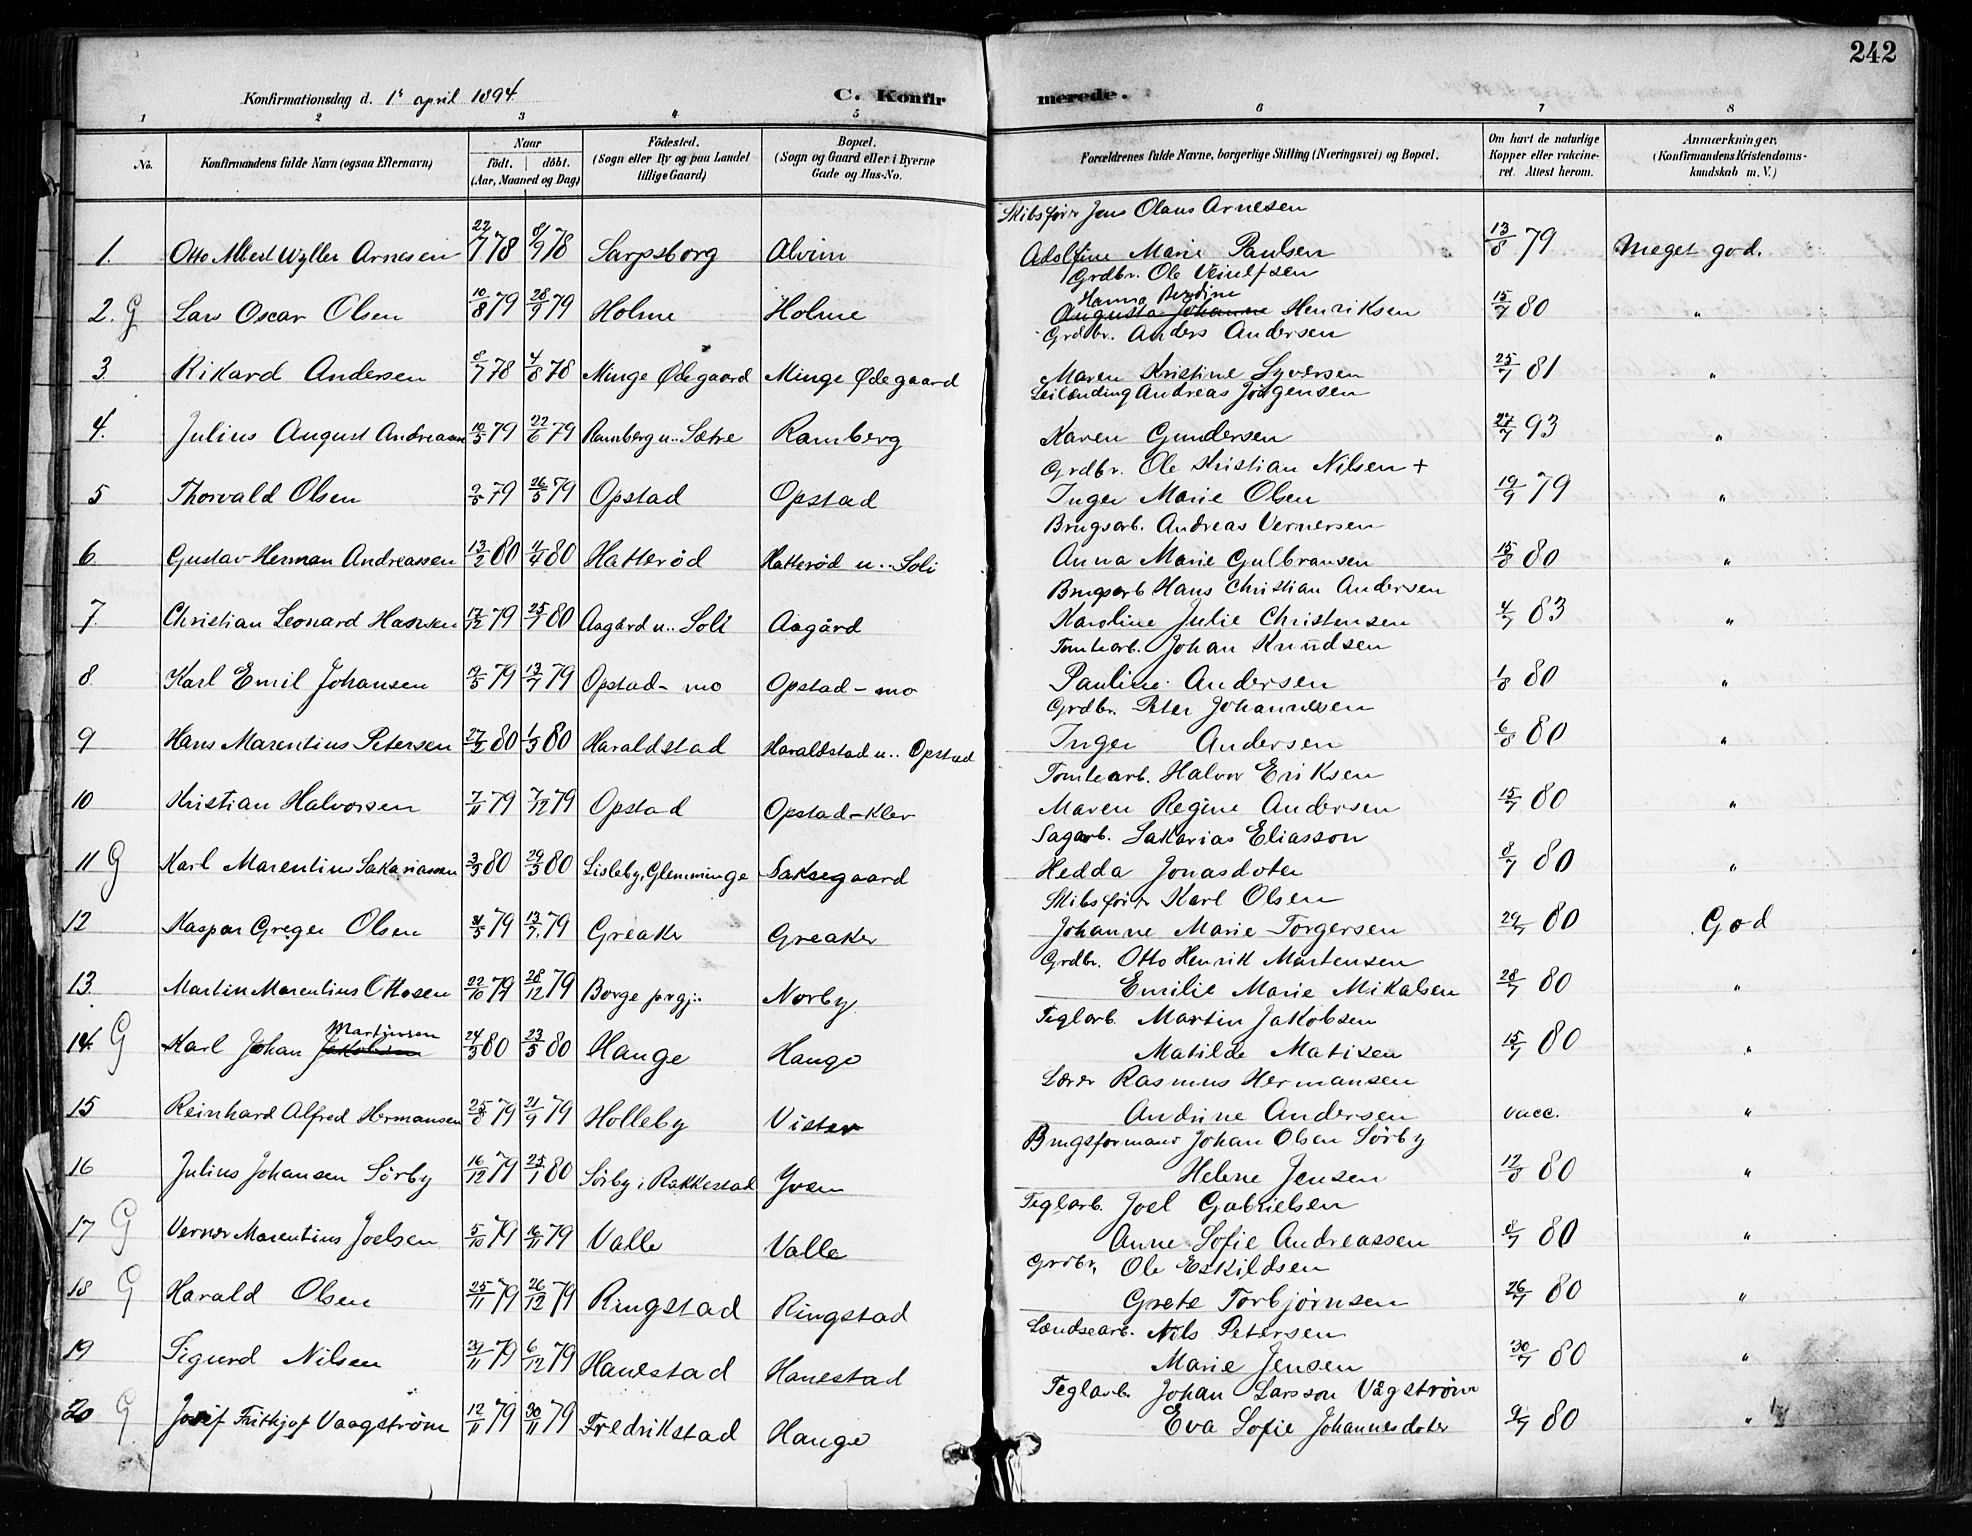 242
Konfirmationsdag d. 1ste april 1894. C. Konfirmerede.
1 2 3 4 5 6 7 8
No. Konfirmandens fulde Navn (ogsaa Efternavn) Naar født. døbt. (Aar, Maaned og Dag) Födested. (Sogn eller By og paa Landet tillige Gaard) Bopæl. (Sogn og Gaard eller i Byerne Gade og Hus-No. Forældrenes fulde Navne, borgerlige Stilling (Næringsvei) og Bopæl. Om havt de naturlige Kopper eller vakcineret. Attest herom. Anmærkninger. (Konfirmandens Kristendomskundskab m. V.)
Skibsfører Jens Olaus Arnesen
1. Otto Albert Wyller Arnesen 22/7 78 8/9 78 Sarpsborg Alvim Adolfine Marie Paulsen 13/8 79 Meget god.
Grdbr. Ole
Hanna Berdine
2. G Lars Oscar Olsen 10/8 79 28/9 79 Holme Holme Augusta Johanne Henriksen 15/7 80 "
Grdbr. Anders Andersen
3. Rikard Andersen 8/7 78 4/8 78 Minge Ødegaard Minge Ødegaard Maren Kristine Syversen 25/7 81 "
Leilending Andreas Jörgensen
4. Julius August Andreassen 10/5 79 22/6 79 Ramberg u.. Sætre Ramberg Karen Gundersen 27/7 93 "
Grdbr. Ole Kristian Nilsen +
5 Thorvald Olsen 9/5 79 26/5 79 Opstad Opstad Inger Marie Olsen 19/9 79 "
Brugsarb. Andreas Vernersen
6. Gustav Herman Andreassen 13/2 80 4/4 80 Hatteröd Hatteröd u.. Soli Anna Marie Gulbransen 15/8 80 "
Brugsarb Hans Christian Andersen
7. Christian Leonard Hansen 17/12 79 25/1 80 Aagård u.. Soli Aagård Karoline Julie Christensen 4/7 83 "
Tomtearb. Johan Knudsen
8. Karl Emil Johansen 19/5 79 13/7 79 Opstad-mo Opstad-mo Pauline Andersen 1/8 80 "
Grdbr. Peter Johannesen
9 Hans Marentius Petersen 27/2 80 1/3 80 Haraldstad Haraldstad u.. Opstad Inger Andersen 6/8 80 "
Tomtearb. Halvor Eriksen
10 Kristian Halvorsen 7/11 79 7/12 79 Opstad Opstad-Klev Maren Regine Andersen 15/7 80 "
Sagarb. Sakarias Eliasson
11 G Karl Marentius Sakariassen 3/3 80 29/3 80 Lisleby, Glemminge Saksegaard Hedda Jonasdoter 8/7 80 "
Skibsfører Karl Olsen
12 Kaspar Greger Olsen 31/5 79 13/7 79 Greaker Greaker Johanne Marie Torgersen 29/7 80 God
Grdbr. Otto Henrik Martensen
13. Martin Marentius Ottosen 22/10 79 28/12 79 Borge prgj.. Norby. Emilie Marie Mikalsen 28/7 80 "
Teglarb. Martin Jakobsen
Martinsen
14. G Karl Johan Jakobsen 24/3 80 23/5 80 Hauge Hauge Matilde Matisen 15/7 80 "
Lærer Rasmus Hermansen
15 Reinhard Alfred Hermansen 25/8 79 21/9 79 Holleby Vister Andrine Andersen vacc. "
Brugsformand Johan Olsen Sörby
16 Julius Johansen Sörby 16/12 79 25/1 80 Sörby i Rakkestad Yven Helene Jensen 12/8 80 "
Teglarb. Joel Gabrielsen
17 G Verner Marentius Joelsen 5/10 79 16/11 79 Valle Valle Anne Sofie Andreassen 8/7 80 "
Grdbr. Ole Eskildsen
18 G Harald Olsen 25/11 79 26/12 79 Ringstad Ringstad Grete Torbjørnsen 26/7 80 "
Lændsearb. Nils Petersen
19 Sigurd Nilsen 29/11 79 6/12 79 Hanestad Hanestad Marie Jensen 30/7 80 "
Teglarb. Johan Larsson Vågström
20 G Josef Frithjof Vaagström 12/11 79 30/11 79 Fredrikstad Hauge Eva Sofie Johannesdoter 9/7 80 "